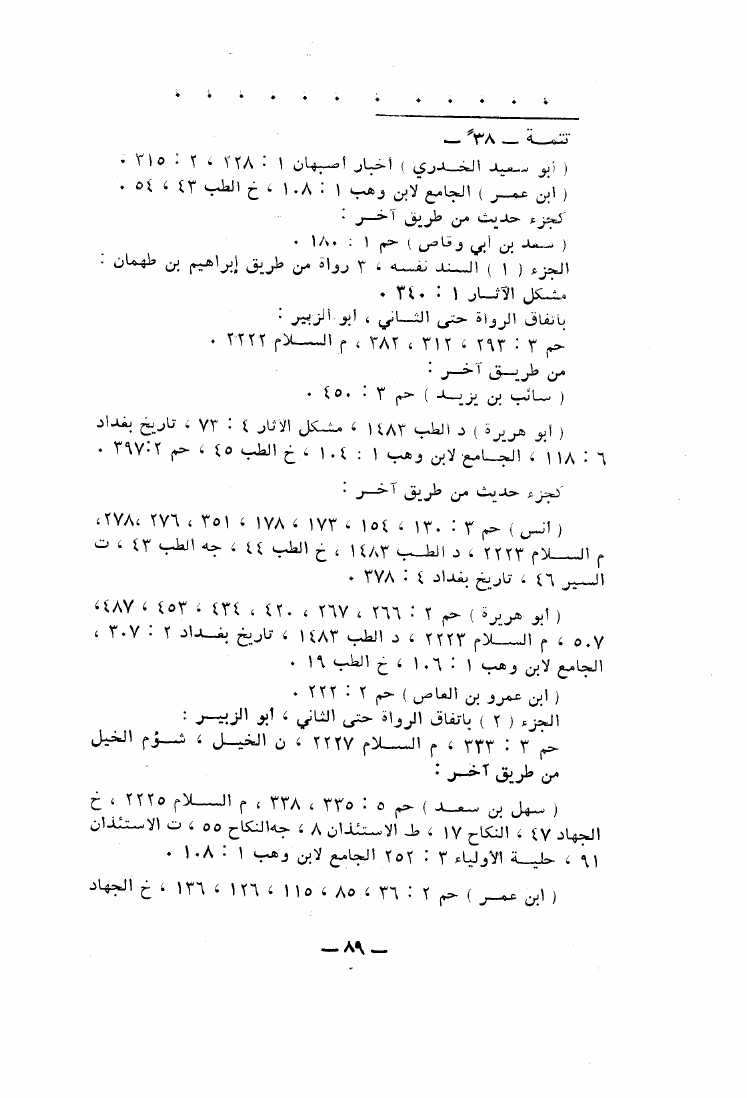 تتمة — ٣٨ —
( أبو سعيد الخدري ) أخبار أصبهان ١ : ٢٢٨ ، ٢ : ٣١٥ .
( ابن عمر ) الجامع لابن وهب ١ : ١٠٨ ، خ الطب ٤٣ ، ٥٤ .
كجزء حديث من طريق آخر :
( سعد بن أبي وقاص ) حم ١ : ١٨٠ .
الجزء ( ١ ) السند نفسه ، ٣ رواة من طريق إبراهيم بن طهمان :
مشكل الآثار ١ : ٣٤٠ .
باتفاق الرواة حتى الثاني ، أبو الزبير :
حم ٣ : ٢٩٣ ، ٣١٢ ، ٣٨٢ ، م السلام ٢٢٢٢ .
من طريق آخر :
( سائب بن يزيد ) حم ٣ : ٤٥٠ .
( أبو هريرة ) د الطب ١٤٨٣ ، مشكل الاثار ٤ : ٧٣ ، تاريخ بغداد
٦ : ١١٨ ، الجامع لابن وهب ١ : ١٠٤ ، خ الطب ٤٥ ، حم ٢:٣٩٧ .
كجزء حديث من طريق آخر :
( أنس ) حم ٣ : ١٣٠ ، ١٥٤ ، ١٧٣ ، ١٧٨ ، ٣٥١ ، ٢٧٦ ، ٢٧٨،
م السلام ٢٢٢٣ ، د الطب ١٤٨٣ ، خ الطب ٤٤ ، جه الطب ٤٣ ، ت
السير ٤٦ ، تاريخ بغداد ٤ : ٣٧٨ .
( أبو هريرة ) حم ٢ : ٢٦٦ ، ٢٦٧ ، ٤٢٠ ، ٤٣٤ ، ٤٥٣ ، ٤٨٧،
٥٠٧ ، م السلام ٢٢٢٣ ، د الطب ١٤٨٣ ، تاريخ بغداد ٢ : ٣٠٧ ،
الجامع لابن وهب ١ : ١٠٦ ، خ الطب ١٩ .
( ابن عمرو بن العاص ) حم ٢ : ٢٢٢ .
الجزء ( ٢ ) باتفاق الرواة حتى الثاني ، أبو الزبير :
حم ٣ : ٣٣٣ ، م السلام ٢٢٢٧ ، ن الخيل ، شؤم الخيل
من طريق آخر :
( سهل بن سعد ) حم ٥ : ٣٣٥ ، ٣٣٨ ، م السلام ٢٢٢٥ ، خ
الجهاد ٤٧ ، النكاح ١٧ ، ط الاستئذان ٨ ، جهالنكاح ٥٥ ، ت الاستئذان
٩١ ، حلية الأولياء ٣ : ٢٥٢ الجامع لابن وهب ١ : ١٠٨ .
( ابن عمر ) حم ٢ : ٣٦ ، ٨٥ ، ١١٥ ، ١٢٦ ، ١٣٦ ، خ الجهاد
— ٨٩ —